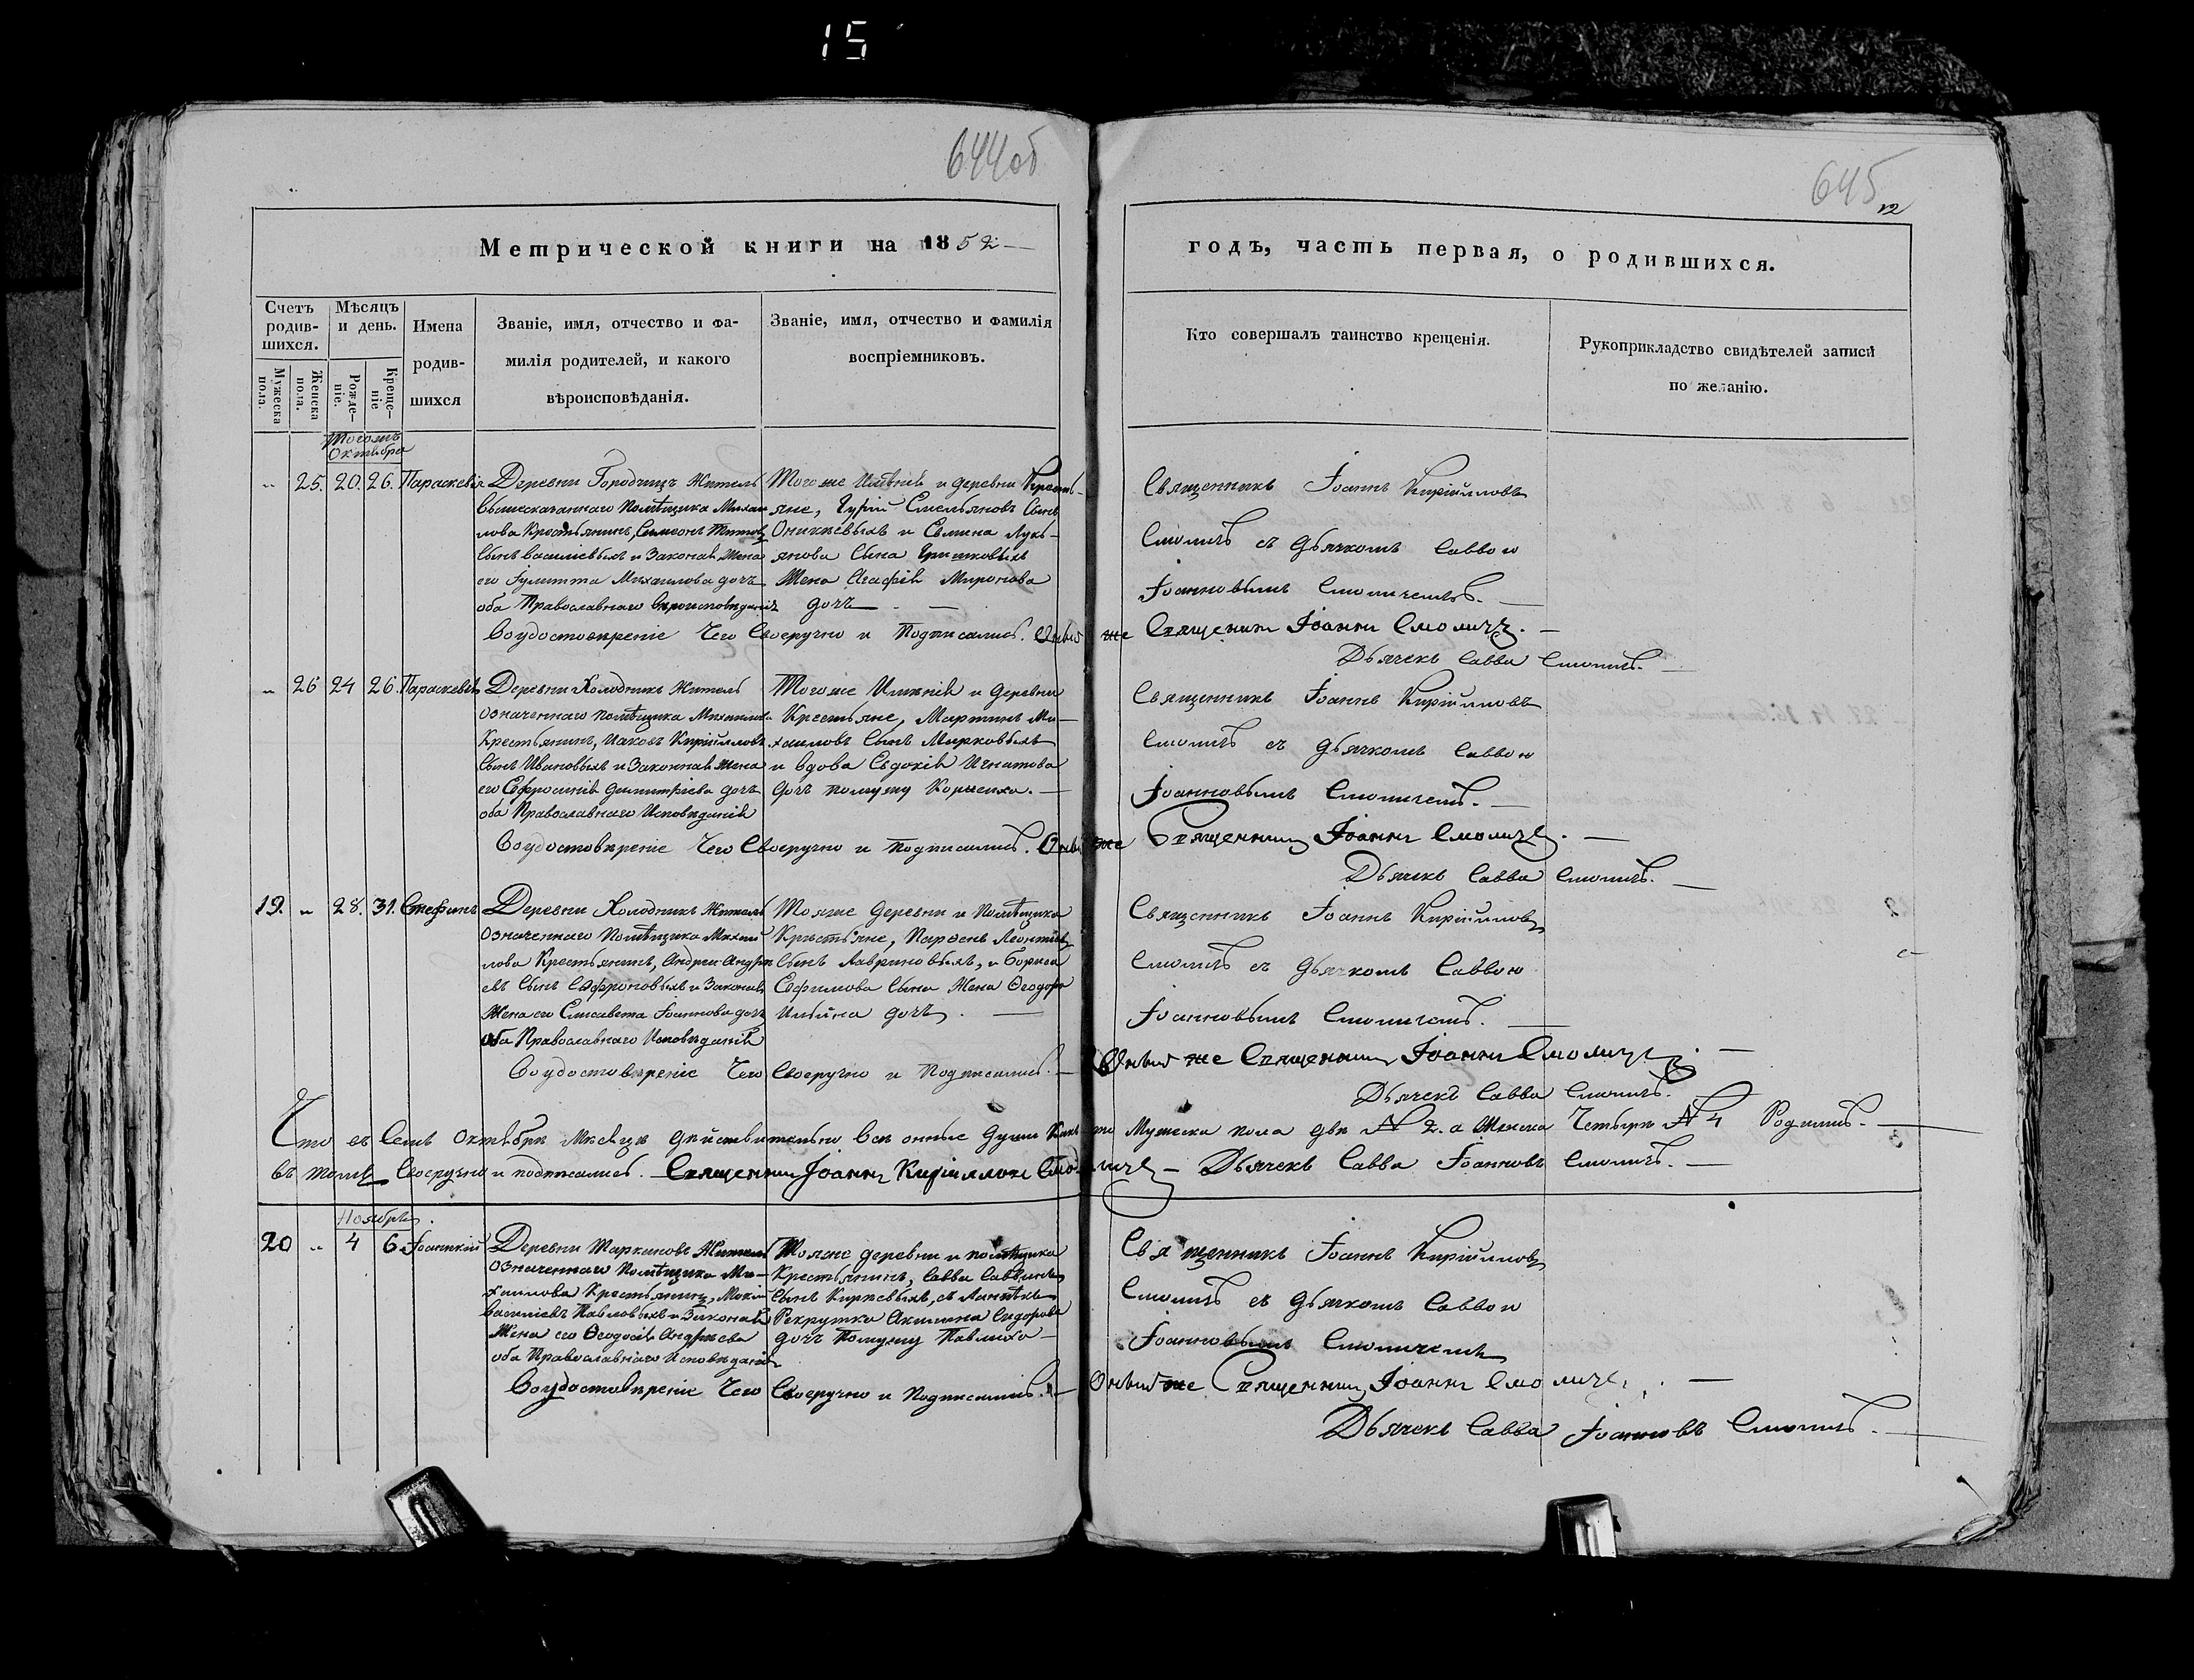 15
644об
645
12
Метрической книги на 1852
годъ, часть первая, о родившихся.
Счетъ родив-шихся.
Мужеска пола.
Женска пола.
Мѣсяцъ и день.
Рожде-ніе.
Креще-ніе
Имена родив-шихся
Званіе, имя, отчество и фа-
милія родителей, и какого
вѣроисповѣданія.
Званіе, имя, отчество и фамилія
воспріемниковъ.
Кто совершалъ таинство крещенія.
Рукоприкладство свидѣтелей записи
по желанію.
Октября
„ 25. 20. 26. Параскевія
Деревни Городчицъ Житель
вышесказаннаго Помѣщика Михаи
лова Крестьянинъ, Симеонъ Титовъ
Сынъ Василіевыхъ и Законная Жена
его Іулитта Михаилова дочь
оба Православнаго вѣроисповѣданія
Тогоже Имѣнія и деревни Кресть-
яне, Гурій Емельяновъ Сынъ
Оникѣевыхъ и Сѣмина Лукь-
янова Сына Гришковыхъ
Жена Агафія Миронова
дочь
Священникъ Іоаннъ Киріилловъ
Смоличъ съ дьячкомъ Саввою
Іоанновымъ Смоличемъ.
Воудостовѣреніе Чего Своеручно и Подписались. Оный же Священникъ Іоаннъ Смоличъ.
Дьячекъ Савва Смоличъ.
„ 26 24 26. Параскевія
Деревни Холодникъ Житель
означеннаго помѣщика Михаилова
Крестьянинъ, Іаковъ Киріилловъ
Сынъ Ивановыхъ и Законная Жена
его Ефросинія Димитріева дочь
оба Православнаго Исповѣданія
Тогоже Имѣнія и деревни
Крестьяне, Мартинъ Ми-
хаиловъ Сынъ Мирковыхъ
и вдова Евдокія Игнатова
дочь помужу Корнеиха.
Священникъ Іоаннъ Киріилловъ
Смоличъ съ дьячкомъ Саввою
Іоанновымъ Смоличемъ.
Воудостовѣреніе Чего Своеручно и подписались. Оный же Священникъ Іоаннъ Смоличъ.
Дьячекъ Савва Смоличъ.
19. „ 28. 31. Стефанъ
Деревни Холодникъ Житель
Означеннаго Помѣщика Михаи
лова Крестьянинъ, Андрей Андрѣе
евъ Сынъ Софроновыхъ и Законная
Жена его Елисавета Іоаннова дочь
оба Православнаго Исповѣданія
Тояже деревни и Помѣщика
Крестьяне, Парфенъ Леонтіевъ
Сынъ Лавриновыхъ, и Бориса
Ефимова Сына Жена Ѳеодора
Ильина дочь.
Священникъ Іоаннъ Киріилловъ
Смоличъ съ дьячкомъ Саввою
Іоанновымъ Смоличемъ.
Воудостовѣреніе Чего Своеручно и Подписались. Оный же Священникъ Іоаннъ Смоличъ.
Дьячекъ Савва Смоличъ.
Что въ Семъ Октябрѣ Мѣсяцѣ дѣйствительно всѣ оные души Мужеска пола двѣ № 2. а Женска Четырѣ № 4 Родились.
въ томъ Своеручно и подписались. Священникъ Іоаннъ Киріилловъ Смоличъ – Дьячекъ Савва Іоанновъ Смоличъ.
Ноябрь
20 „ 4 6. Іоанникій
Деревни Маркиновъ Житель
означеннаго Помѣщика Ми-
хаилова Крестьянинъ,
Василіевъ Павловыхъ и Законная
Жена его Ѳеодосія Андрѣева
оба Православнаго Исповѣданія
Тояже деревни и помѣщика
Крестьянинъ, Савва Саввинъ
Сынъ Кирѣевыхъ,
Рекрутка Акилина Сидорова
дочь помужу Павлиха
Священникъ Іоаннъ Киріилловъ
Смоличъ съ дьячкомъ Саввою
Іоанновымъ Смоличемъ
Воудостовѣреніе Чего Своеручно и Подписались. Оный же Священникъ Іоаннъ Смоличъ.
Дьячекъ Савва Іоанновъ Смоличъ.